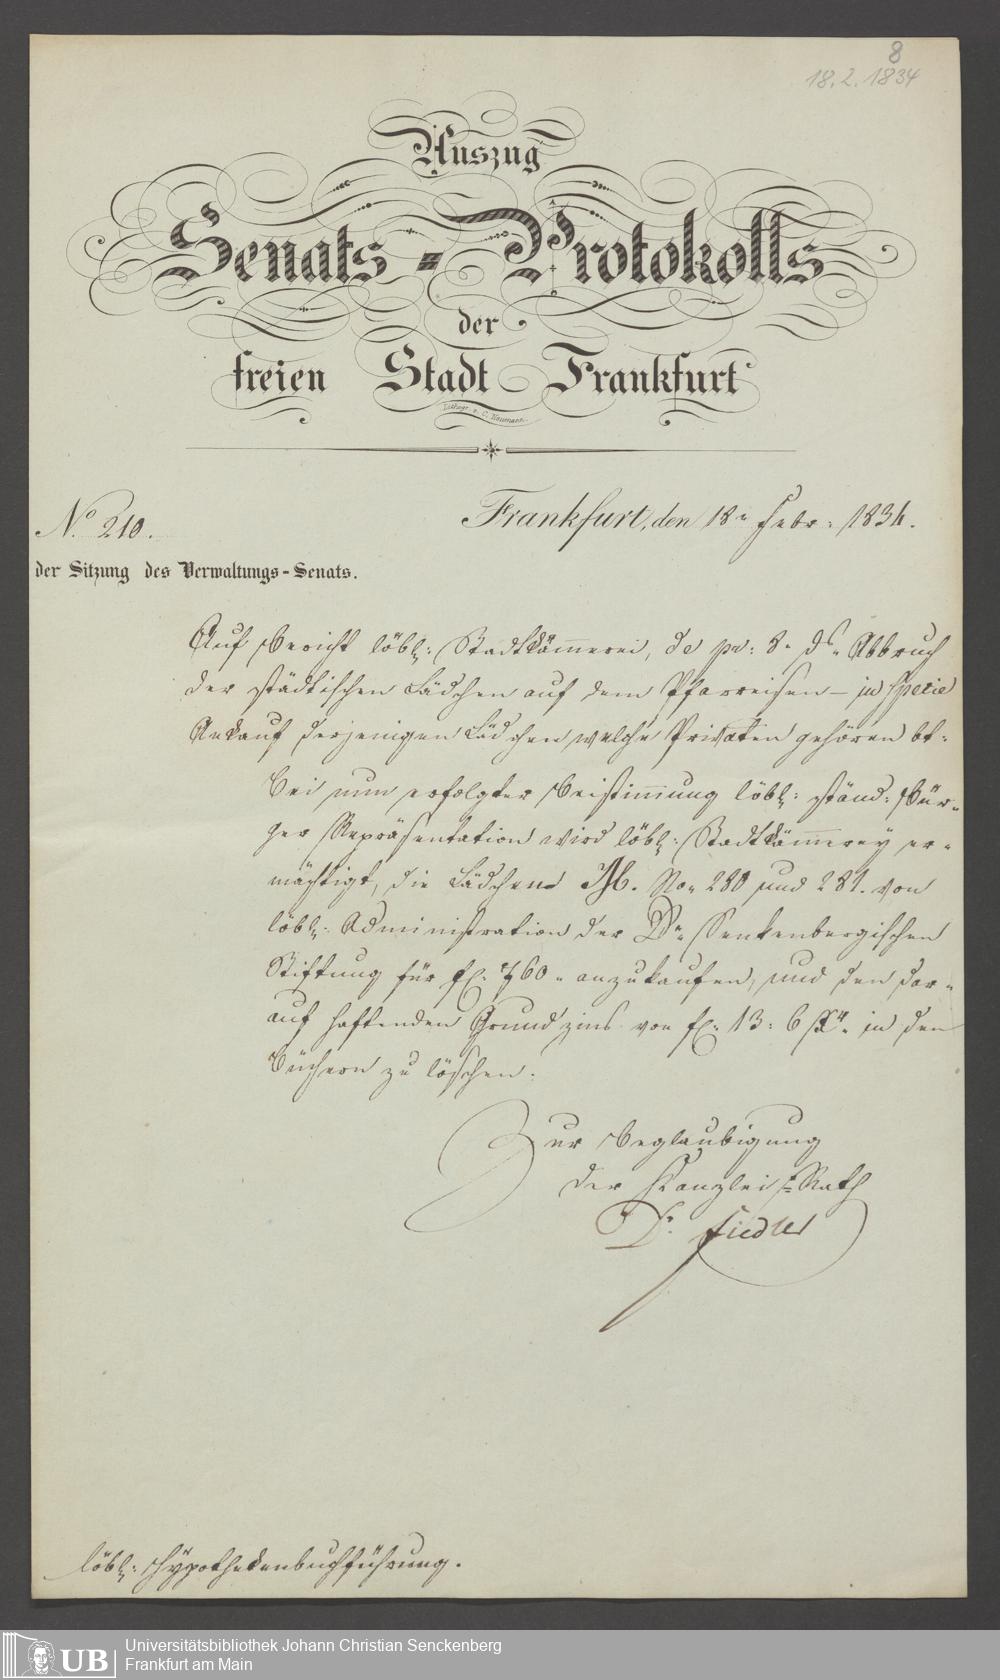 8
18.2.1834
Auszug
Senats-Protokolls
der
freien Stadt Frankfurt
Lithogr. v. C. Naumann.
No. 210.
Frankfurt, den 18n Febr: 1834.
der Sitzung des Verwaltungs-Senats.
Auf Bericht löbl: Stadtkämmerei, de pr: 8. ds. Abbruch
der städtischen Lädchen auf dem Pfarreisen – in specie
Ankauf derjenigen Lädchen welche Privaten gehören bt.
Bei nun erfolgter Beistimmung löbl: ständ: Bür-
ger Repräsentation wird löbl: Stadtkämmerey er-
mächtigt, die Lädchen M. No. 280 und 281. von
löbl: Administration der Dr. Senkenbergischen
Stiftung für fl. 760. anzukaufen, und den dar-
auf haftenden Grundzins von fl. 13: 6 Xr. in den
Büchern zu löschen.
Zur Beglaubigung
der Kanzlei-Rath
Dr. Fiedler
löbl: Hypothekenbuchführung.
UB
Universitätsbibliothek Johann Christian Senckenberg
Frankfurt am Main